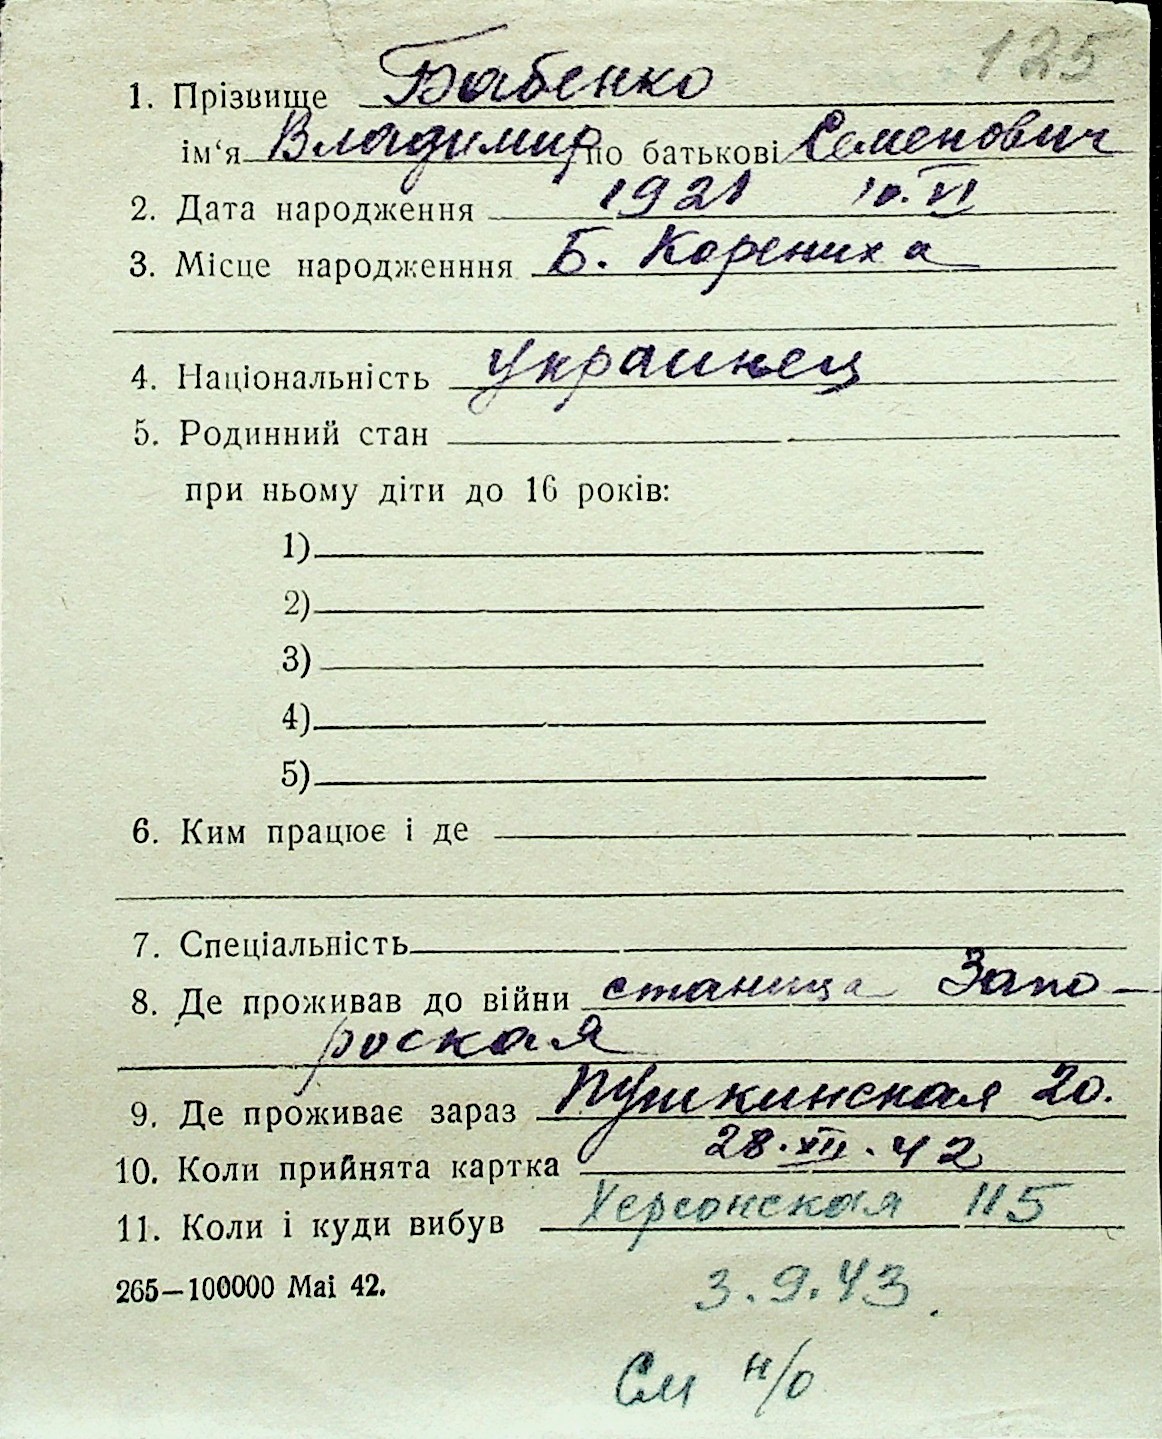 125
1. Прізвище Бабенко
ім‘я Владимир по батькові Семенович
2. Дата народження 1921 10.VI
3. Місце народженння Б. Корениха
4. Національність украинец
5. Родинний стан
при ньому діти до 16 років:
1)
2)
3)
4)
5)
6. Ким працює і де
7. Спеціальність
8. Де проживав до війни станица Запо-
роская
9. Де проживає зараз Пушкинская 20.
10. Коли прийнята картка 28.XII.42
11. Коли і куди вибув Херсонская 115
265—100000 Mai 42.
3.9.43.
См н/о